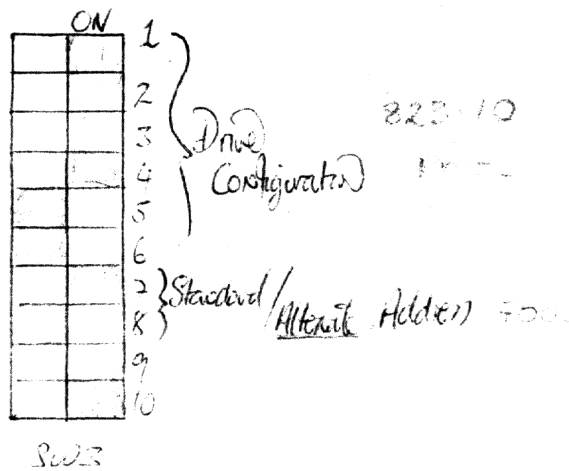 ON
1
2
3
4
5
6
7
8
9
10
Drive
Configuration
Standard/Alternate Address
SW3